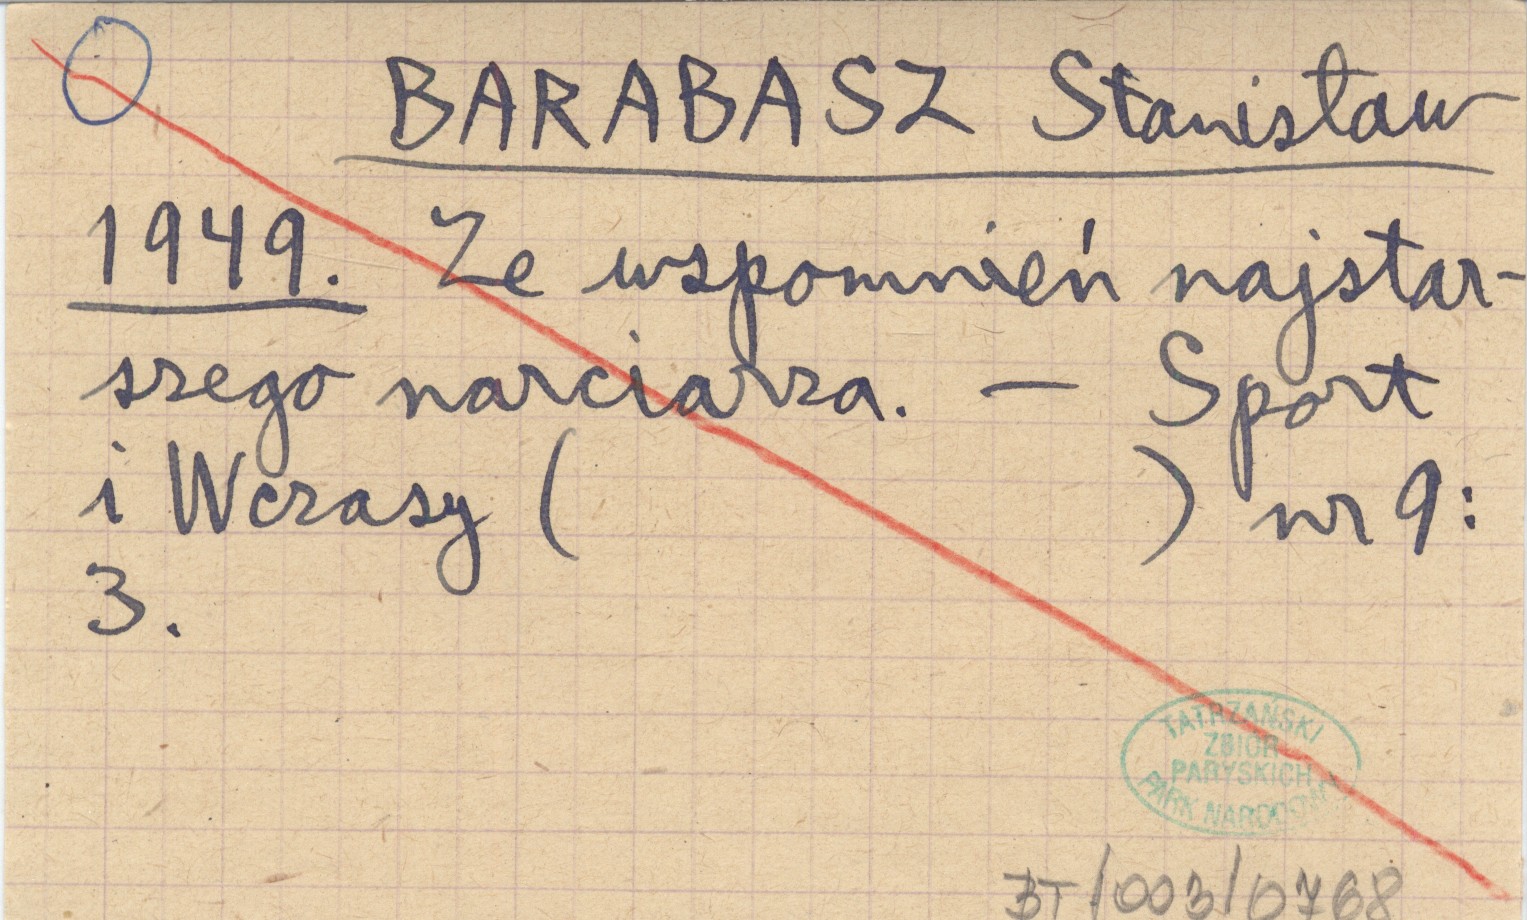 BARABASZ Stanisław
1949. Ze wspomnień najstar-
szego narciarza. — Sport
i Wczasy (                    ) nr 9:
3.
TATRZAŃSKI
ZBIÓR
PARYSKICH
PARK NARODOWY
BT/003/0768